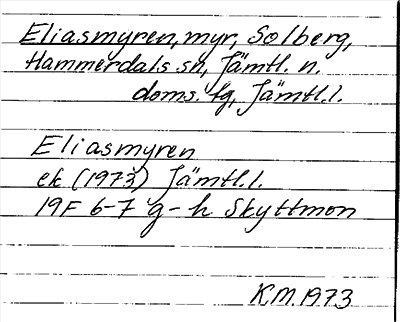 Eliasmyren, myr, Solberg,
Hammerdals sn, Jämtl. n.
doms. lg, Jämtl.l.
Eliasmyren
ek (1973) Jämtl.l.
19F 6-7 g-h Skyttmon
K.M. 1973